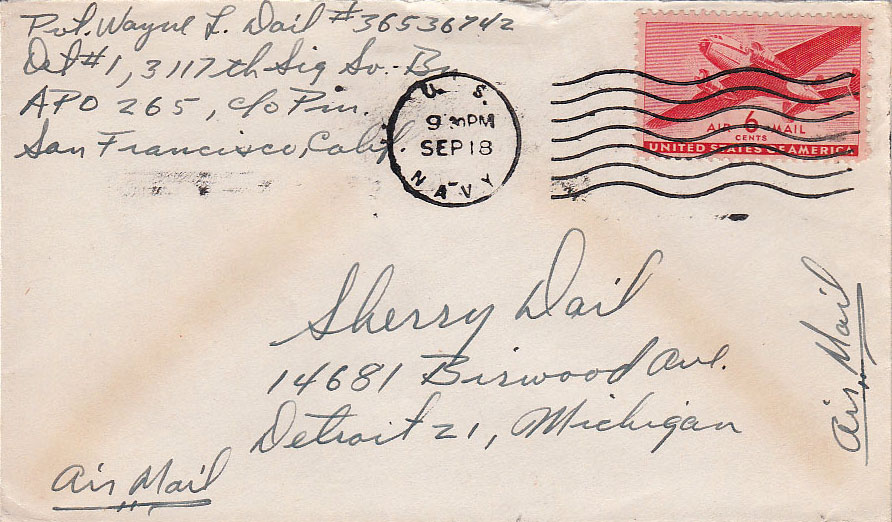 Pvt. Wayne L. Dail #36536742
Det #1, 3117th Sig Sv. Bn
APO 265, c/o P.M.
San Francisco, Calif.
U. S.
9 30 PM
SEP 18
NAVY
AIR 6 MAIL
CENTS
UNITED STATES OF AMERICA
Sherry Dail
14681 Birwood Ave.
Detroit 21, Michigan
Air Mail
Air Mail